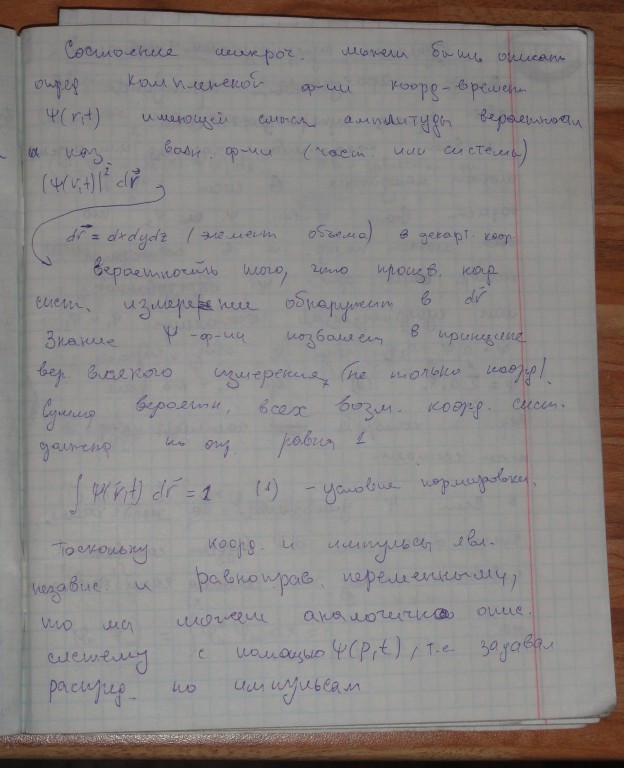 Состояние микроч. может быть описат
опред комплексной ф-ии коорд-времен
Ψ(r,t) имеющей смысл амплитуды вероятности
и наз. волн. ф-ии (част. или системы)
|Ψ(r,t)|² dr⃗
dr⃗ = dxdydz (элемент объема) в декарт. коор.
вероятность того, что произв. над
сист. измерение обнаружит в dr⃗
Знание Ψ-ф-ии позволяет в принципе
вер всякого измерения, (не только коорд).
Сумма вероятн. всех возм. коорд. сист.
должна по опр. равна 1
∫ Ψ(r⃗,t) dr⃗ = 1 (1) - условие нормировки.
Поскольку коорд. и импульсы явл.
независ и равноправ. переменными,
то мы можем аналогично опис.
систему с помощью Ψ(p,t), т.е задавал
распред. по импульсам